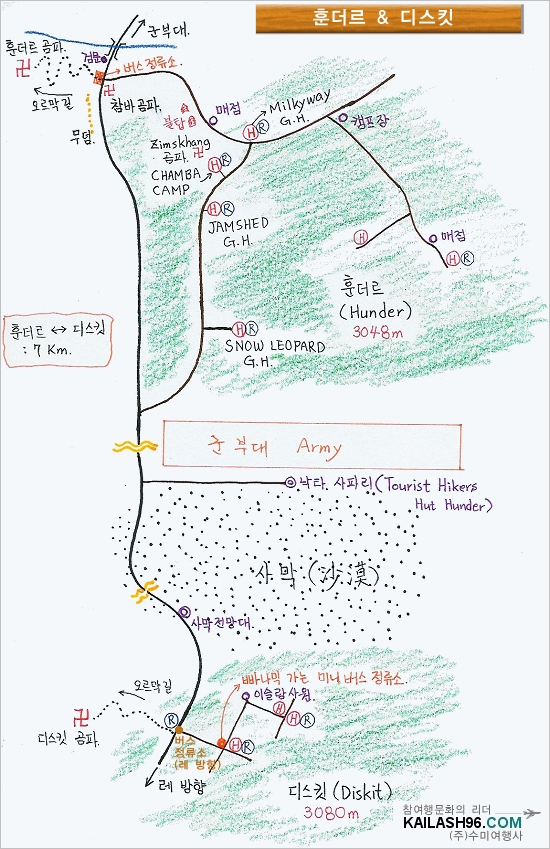 훈더르 & 디스킷
군부대.
훈더르 곰파.
검문소
버스정류소.
오르막길
참바곰파.
무덤.
불탑
매점
Milkyway
G.H.
H R
캠프장
Zimskhang
곰파
H R
CHAMBA
CAMP
H R
JAMSHED
G.H.
H
매점
H R
훈더르
(Hunder)
3048m
훈더르 ↔ 디스킷
: 7 Km.
H R
SNOW LEOPARD
G.H.
군부대 Army
낙타 사파리 (Tourist Hikers
Hut Hunder)
사막 (沙漠)
사막전망대.
빠나믹 가는 미니버스 정류소.
오르막길
이슬람사원.
H
H R
디스킷 곰파.
R
버스
정류소
(레 방향)
H R
레 방향
디스킷 (Diskit)
3080m
참여행문화의 리더
KAILASH96.COM
(주)수미여행사